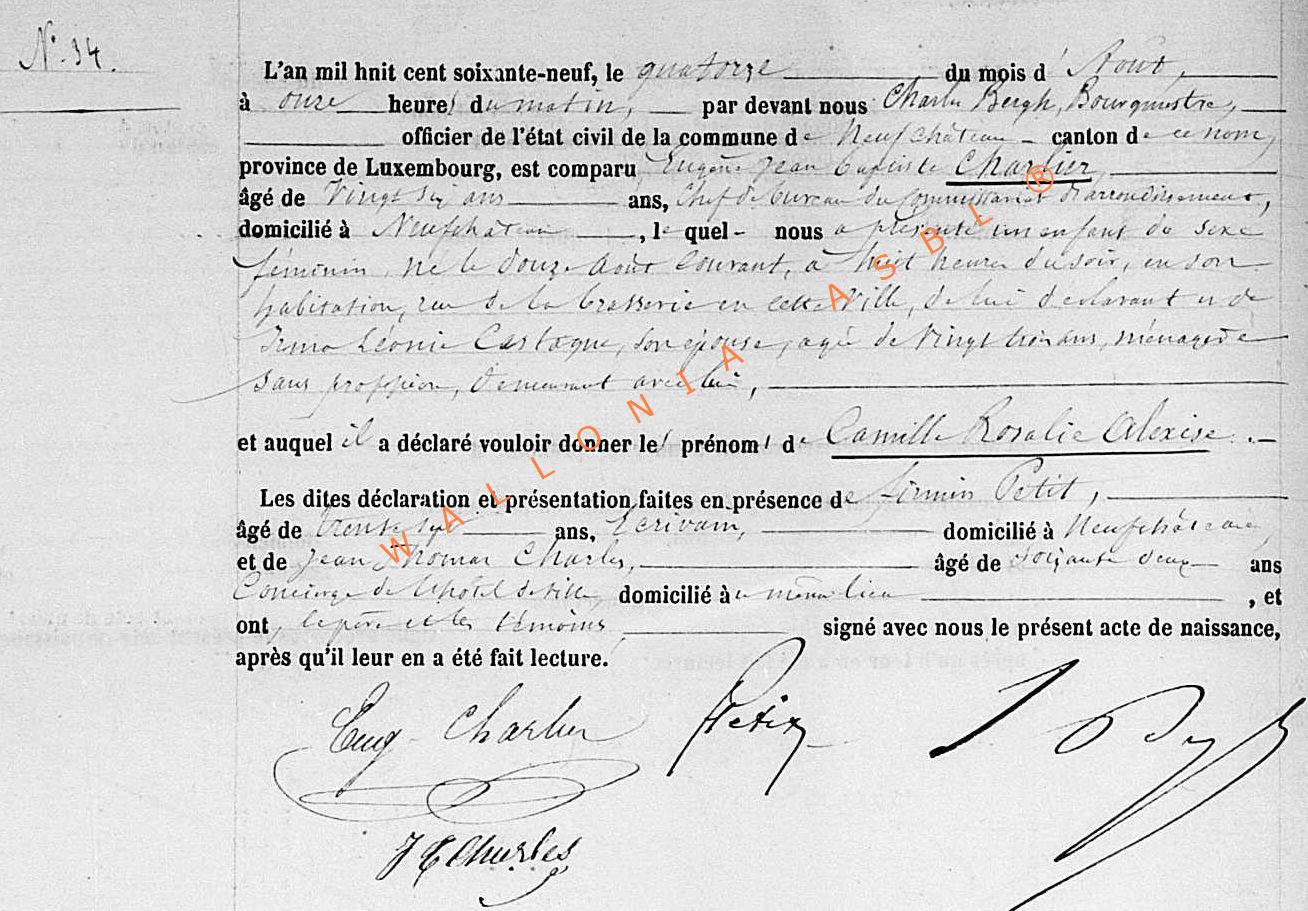 N° 34.
L'an mil huit cent soixante-neuf, le quatorze du mois d'Août,
à onze heures du matin, par devant nous Charles Bergh, Bourgmestre,
officier de l'état civil de la commune de Neufchâteau canton de ce nom,
province de Luxembourg, est comparu Eugène Jean Baptiste Charlier,
âgé de Vingt six ans ans, Chef de bureau du Commissariat d'arrondissement,
domicilié à Neufchâteau, lequel nous a présenté un enfant du sexe
féminin, né le douze Août Courant, à huit heures du soir, en son
habitation, rue de la brasserie en cette Ville, de lui déclarant et de
Irma Léonie Castagne, son épouse, agée de Vingt trois ans, ménagère
sans profession, demeurant avec lui,
et auquel il a déclaré vouloir donner les prénoms de Camille Rosalie Alexise.
Les dites déclaration et présentation faites en présence de Firmin Petit,
âgé de trente six ans, Ecrivain, domicilié à Neufchâteau,
et de Jean Thomas Charles, âgé de soixante deux ans
Concierge de l'hôtel de ville, domicilié à même lieu, et
ont, le père et les témoins signé avec nous le présent acte de naissance,
après qu'il leur en a été fait lecture.
Eug Charlier Petit
J T Charles
WALLONIA ASBL ®